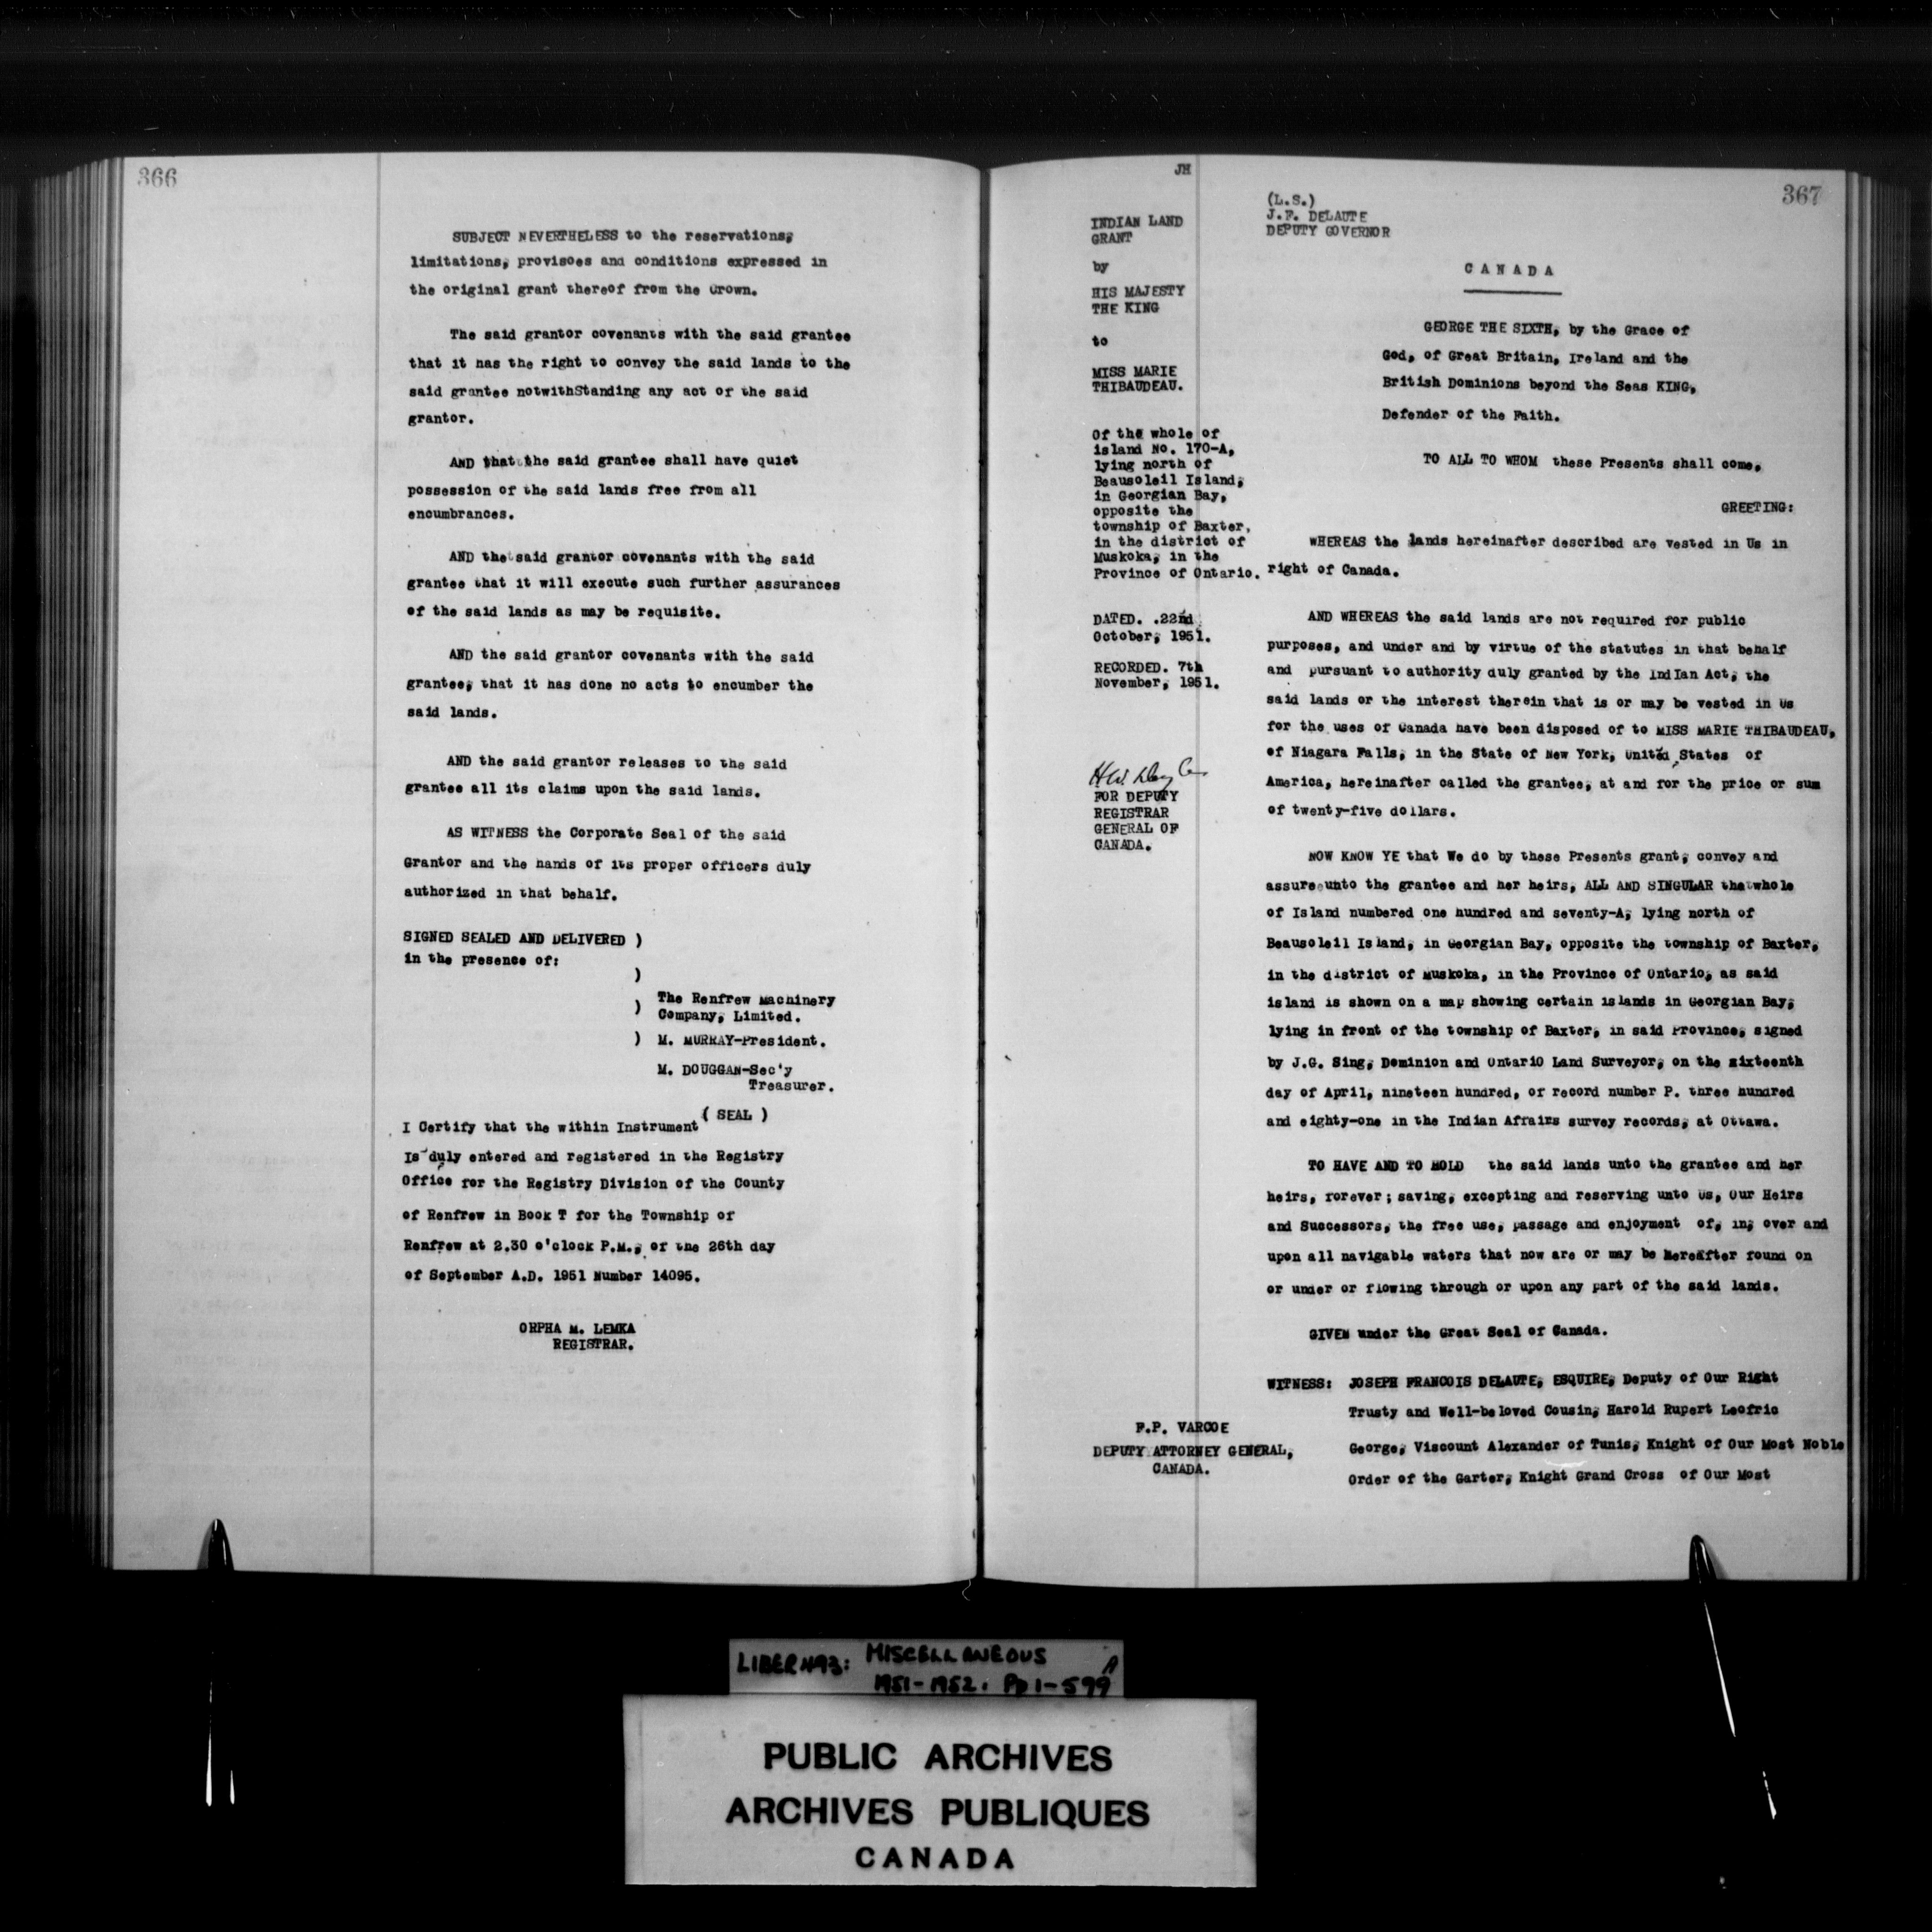 366
SUBJECT NEVERTHELESS to the reservations,
limitations, provisoes and conditions expressed in
the original grant thereof from the Crown.
The said grantor covenants with the said grantee
that it has the right to convey the said lands to the
said grantee notwithStanding any act of the said
grantor.
AND that the said grantee shall have quiet
possession of the said lands free from all
encumbrances.
AND the said grantor covenants with the said
grantee that it will execute such further assurances
of the said lands as may be requisite.
AND the said grantor covenants with the said
grantee, that it has done no acts to encumber the
said lands.
AND the said grantor releases to the said
grantee all its claims upon the said lands.
AS WITNESS the Corporate Seal of the said
Grantor and the hands of its proper officers duly
authorized in that behalf.
SIGNED SEALED AND DELIVERED )
in the presence of:
)
) The Renfrew Machinery
Company, Limited.
) M. MURRAY-President.
M. DOUGGAN-Sec'y
Treasurer.
( SEAL )
I Certify that the within Instrument
Is duly entered and registered in the Registry
Office for the Registry Division of the County
of Renfrew in Book T for the Township of
Renfrew at 2.30 o'clock P.M., of the 26th day
of September A.D. 1951 Number 14095.
ORPHA M. LEMKA
REGISTRAR.
JH
367
INDIAN LAND
GRANT
by
HIS MAJESTY
THE KING
to
MISS MARIE
THIBAUDEAU.
Of the whole of
island No. 170-A,
lying north of
Beausoleil Island,
in Georgian Bay,
opposite the
township of Baxter,
in the district of
Muskoka, in the
Province of Ontario.
DATED. .22nd
October, 1951.
RECORDED. 7th
November, 1951.
FOR DEPUTY
REGISTRAR
GENERAL OF
CANADA.
(L.S.)
J.F. DELAUTE
DEPUTY GOVERNOR
C A N A D A
GEORGE THE SIXTH, by the Grace of
God, of Great Britain, Ireland and the
British Dominions beyond the Seas KING,
Defender of the Faith.
TO ALL TO WHOM these Presents shall come,
GREETING:
WHEREAS the lands hereinafter described are vested in Us in
right of Canada.
AND WHEREAS the said lands are not required for public
purposes, and under and by virtue of the statutes in that behalf
and pursuant to authority duly granted by the IndIan Act, the
said lands or the interest therein that is or may be vested in Us
for the uses of Canada have been disposed of to MISS MARIE THIBAUDEAU,
of Niagara Falls, in the State of New York, United States of
America, hereinafter called the grantee, at and for the price or sum
of twenty-five dollars.
NOW KNOW YE that We do by these Presents grant, convey and
assure unto the grantee and her heirs, ALL AND SINGULAR the whole
of Island numbered one hundred and seventy-A, lying north of
Beausoleil Island, in Georgian Bay, opposite the township of Baxter,
in the district of Muskoka, in the Province of Ontario, as said
island is shown on a map showing certain islands in Georgian Bay,
lying in front of the township of Baxter, in said Province, signed
by J.G. Sing, Dominion and Ontario Land Surveyor, on the sixteenth
day of April, nineteen hundred, of record number P. three hundred
and eighty-one in the Indian Affairs survey records, at Ottawa.
TO HAVE AND TO HOLD the said lands unto the grantee and her
heirs, forever; saving, excepting and reserving unto Us, Our Heirs
and Successors, the free use, passage and enjoyment of, in, over and
upon all navigable waters that now are or may be hereafter found on
or under or flowing through or upon any part of the said lands.
GIVEN under the Great Seal of Canada.
WITNESS: JOSEPH FRANCOIS DELAUTE, ESQUIRE, Deputy of Our Right
Trusty and Well-beloved Cousin, Harold Rupert Leofric
George, Viscount Alexander of Tunis, Knight of Our Most Noble
Order of the Garter, Knight Grand Cross of Our Most
F.P. VARCOE
DEPUTY ATTORNEY GENERAL,
CANADA.
LIBER 493: MISCELLANEOUS A
1951-1952. Pp 1-599
PUBLIC ARCHIVES
ARCHIVES PUBLIQUES
CANADA